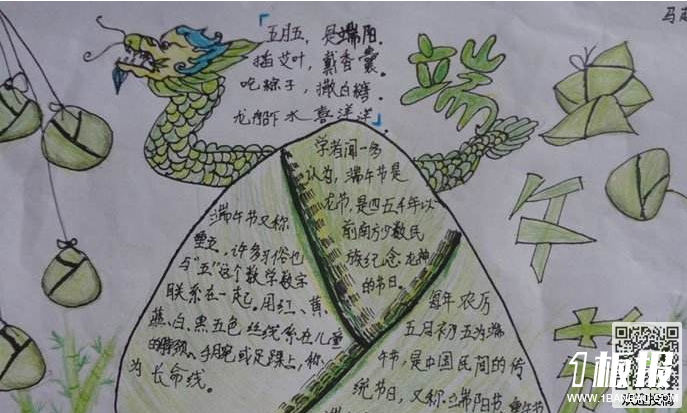 五月五，是端阳．
插艾叶，戴香囊．
吃粽子，撒白糖．
龙船下水喜洋洋．
端午节
学者闻一多
认为，端午节是
龙节，是四五千年以
前南方少数民
族纪念龙神
的节日。
端午节又称
重五，许多习俗也
与“五”这个数学数字
联系在一起。用红、黄、
蓝、白、黑五色丝线系在儿童
的脖颈、手腕或足踝上，称
为长命线。
每年农历
五月初五为端
午节，是中国民间的传
统节日，又称端阳节、重午节
1板报
WWW.1BANBAO.COM